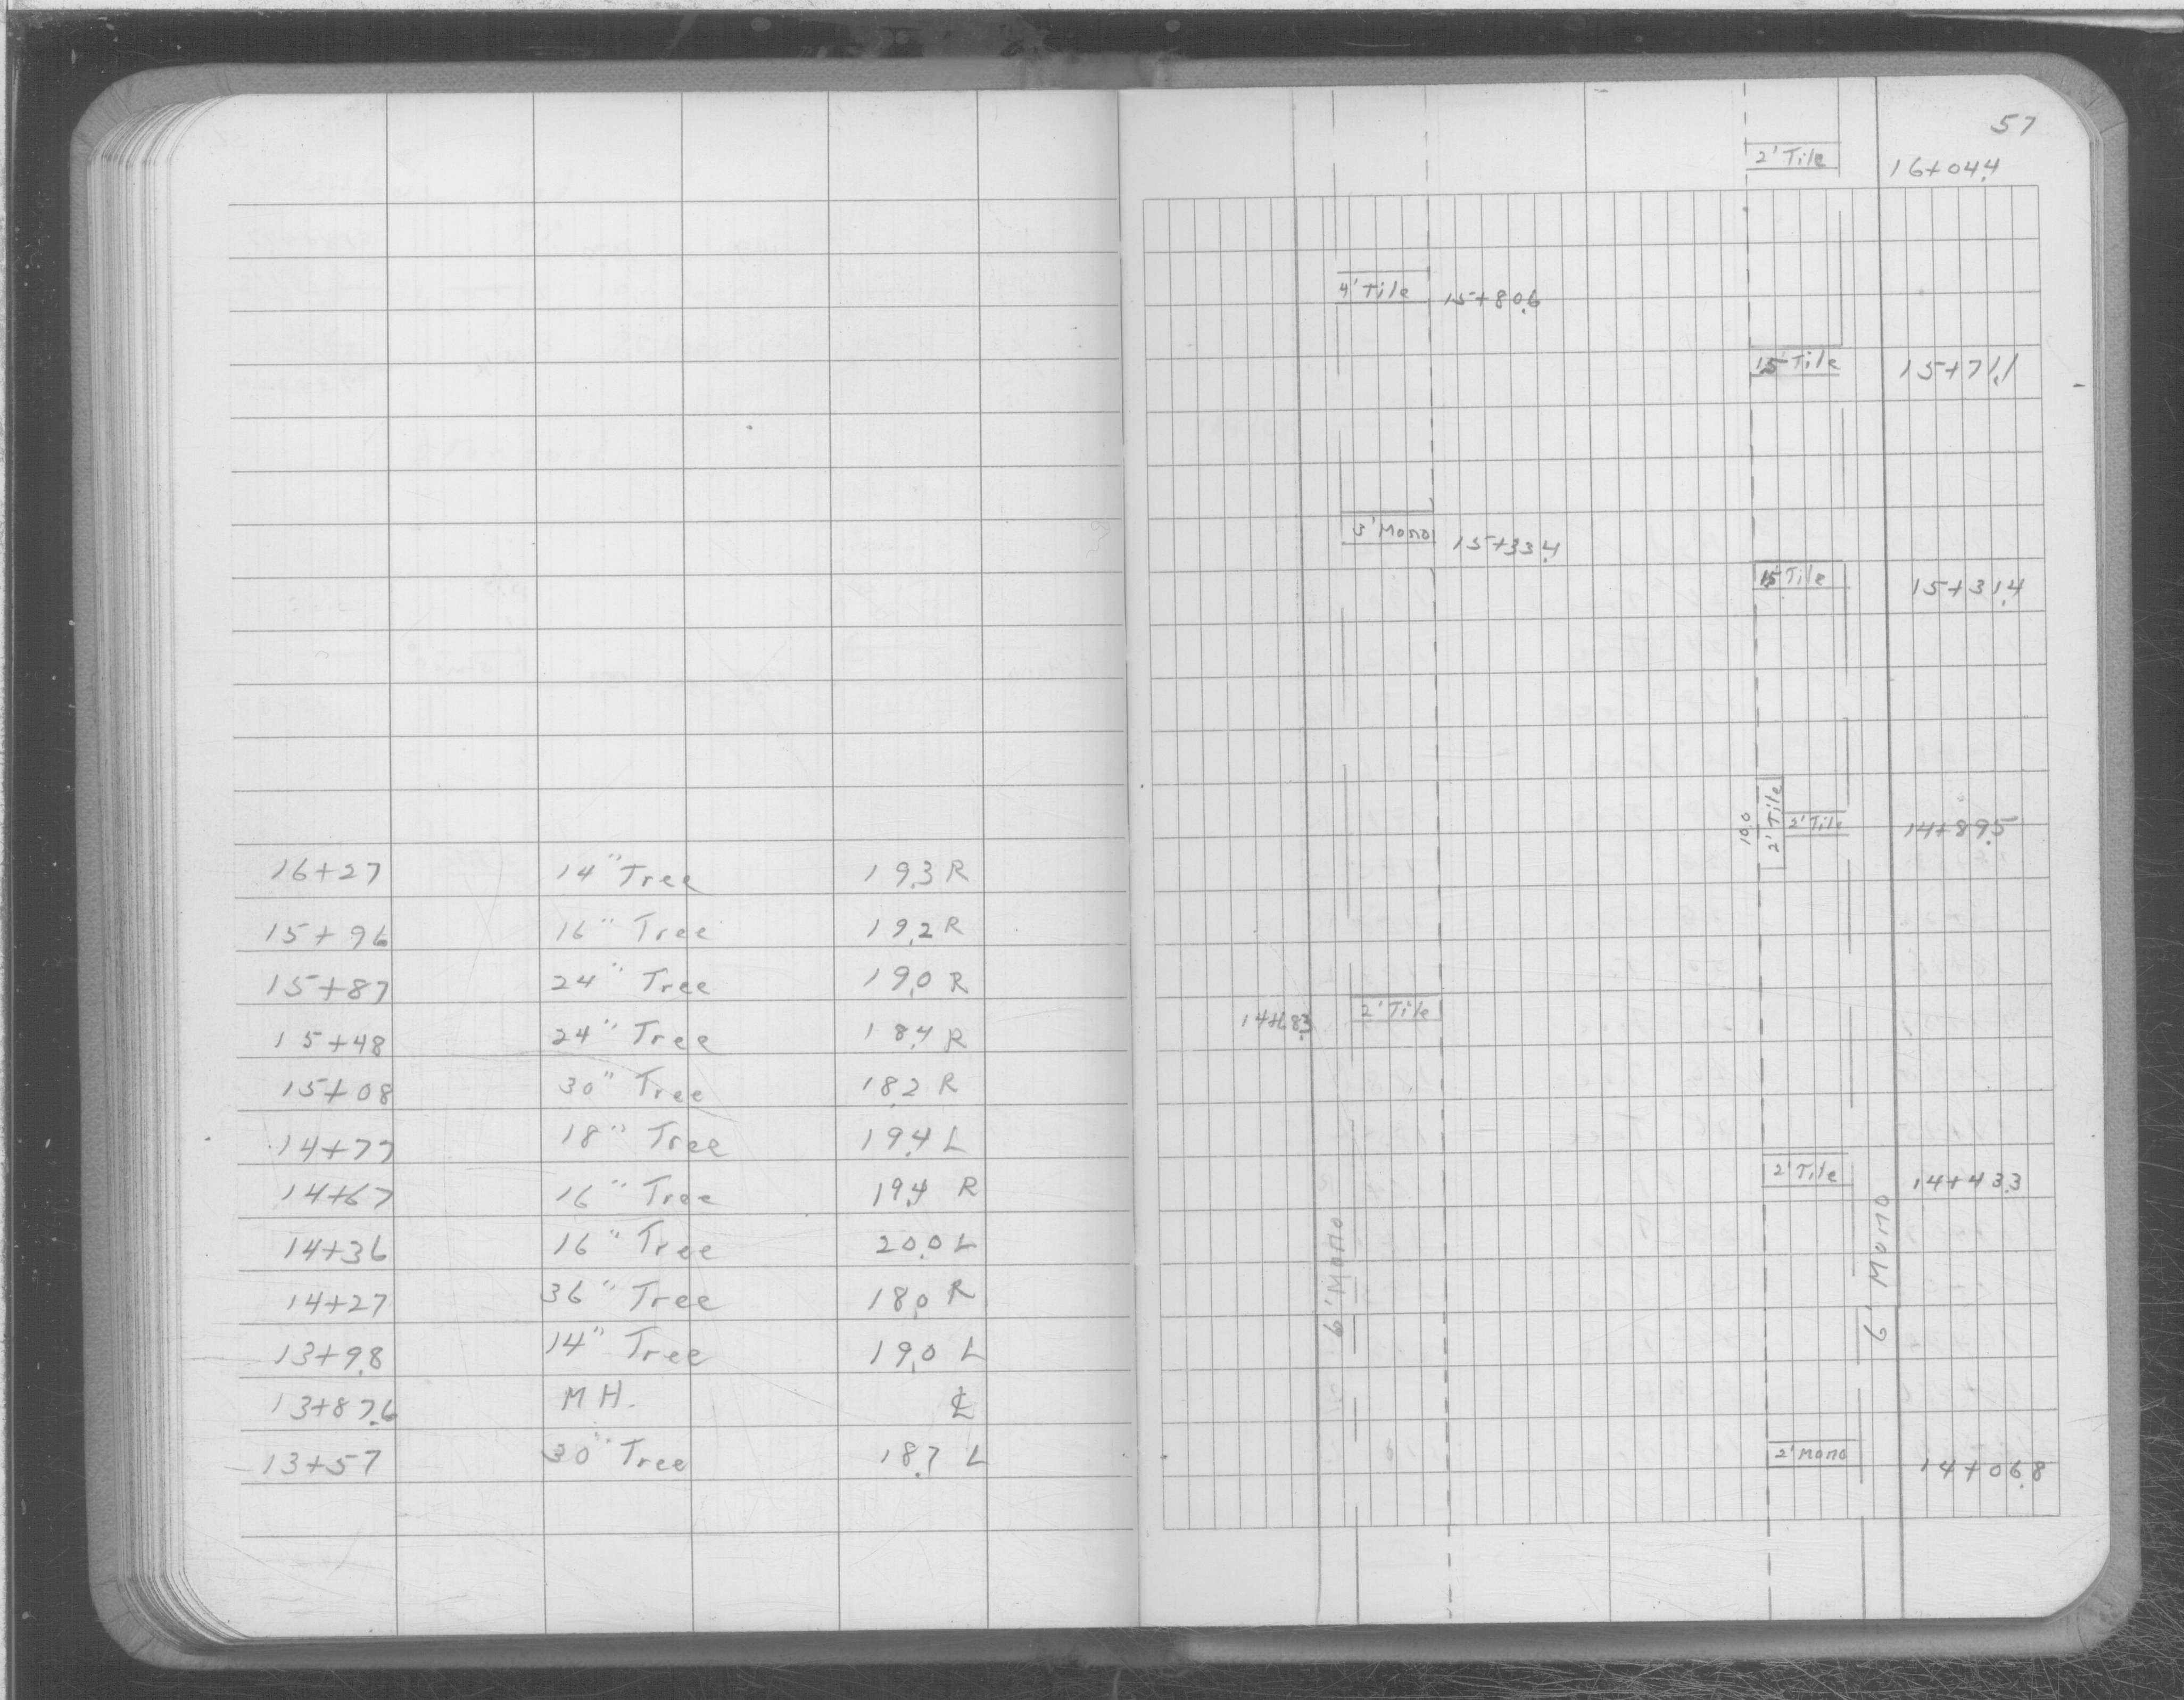 16+27 14" Tree 19.3 R
15+96 16" Tree 19.2 R
15+87 24" Tree 19.0 R
15+48 24" Tree 18.4 R
15+08 30" Tree 18.2 R
14+77 18" Tree 19.4 L
14+67 16" Tree 19.4 R
14+36 16" Tree 20.0 L
14+27 36" Tree 18.0 R
13+98 14" Tree 19.0 L
13+87.6 M.H. ℄
13+57 30" Tree 18.7 L
57
2' Tile 16+04.4
4' Tile 15+80.6
15' Tile 15+71.1
3' Mono 15+33.4
15' Tile 15+31.4
10.0 2' Tile 2' Tile 14+89.5
2' Tile
2' Tile 14+43.3
6' Mono 6' Mono
2' Mono 14+06.8